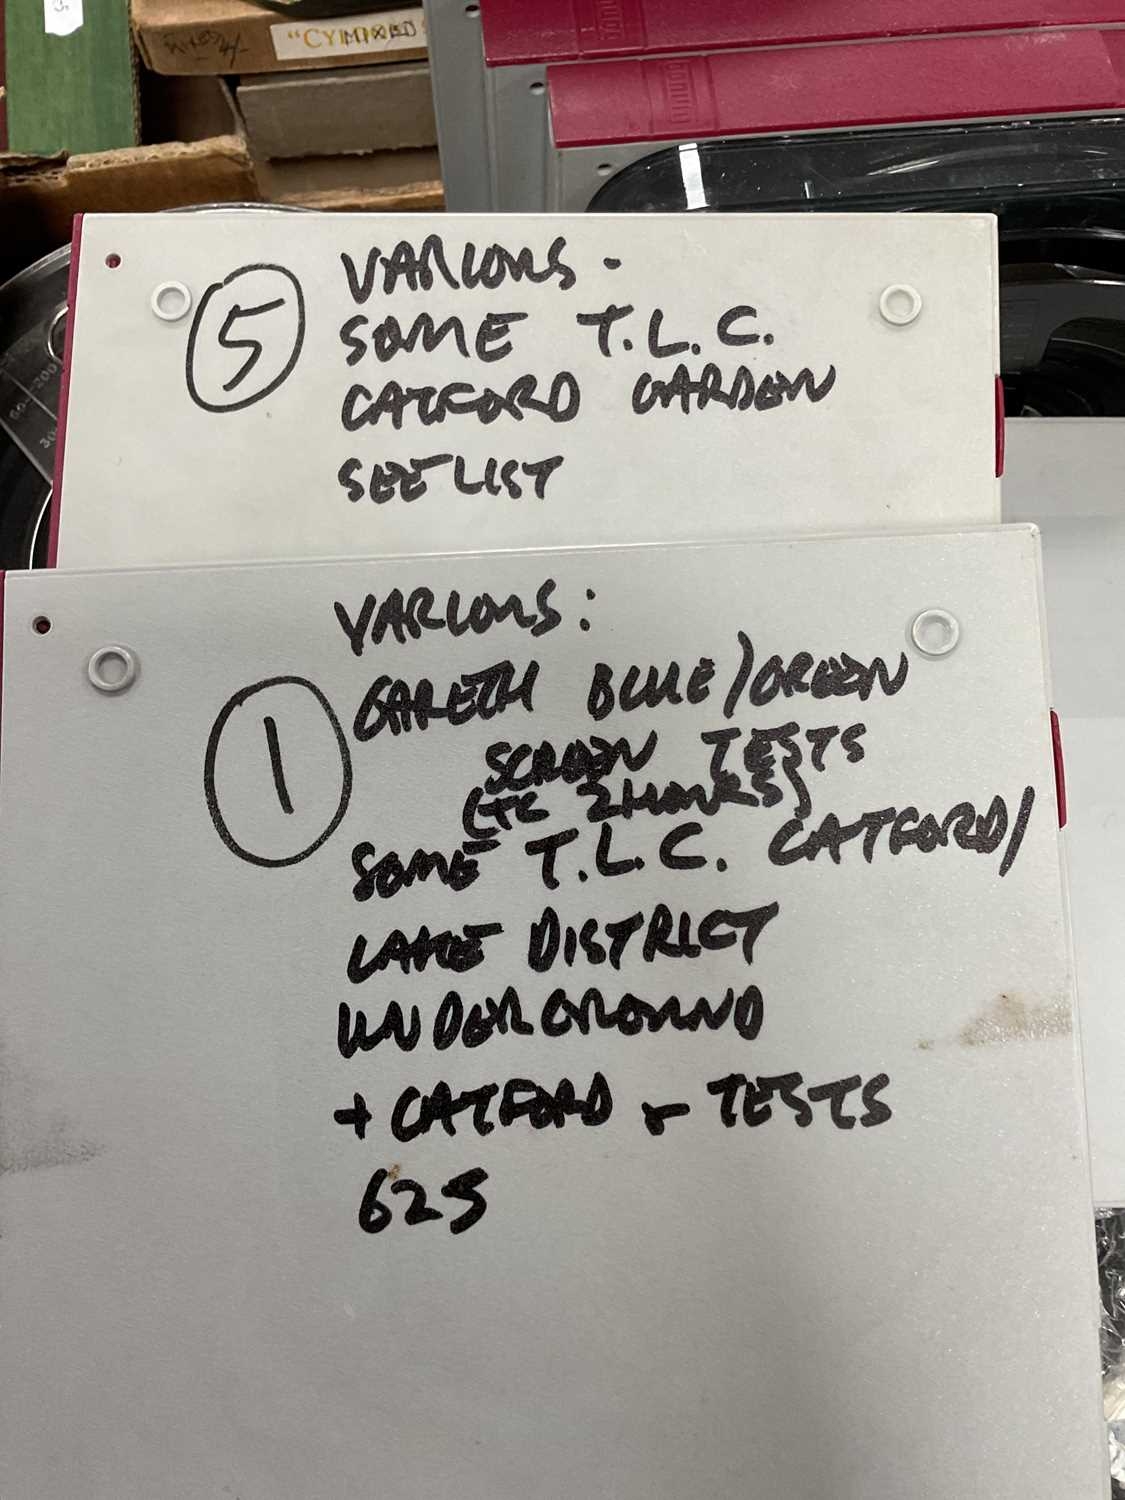 5
VARIOUS -
SOME T.L.C.
CATFORD GARDEN
SEE LIST
1
VARIOUS:
GARETH BLUE/GREEN
SCREEN TESTS
(TC 2 HOURS)
SOME T.L.C. CATFORD/
LAKE DISTRICT
UNDERGROUND
+ CATFORD - TESTS
625